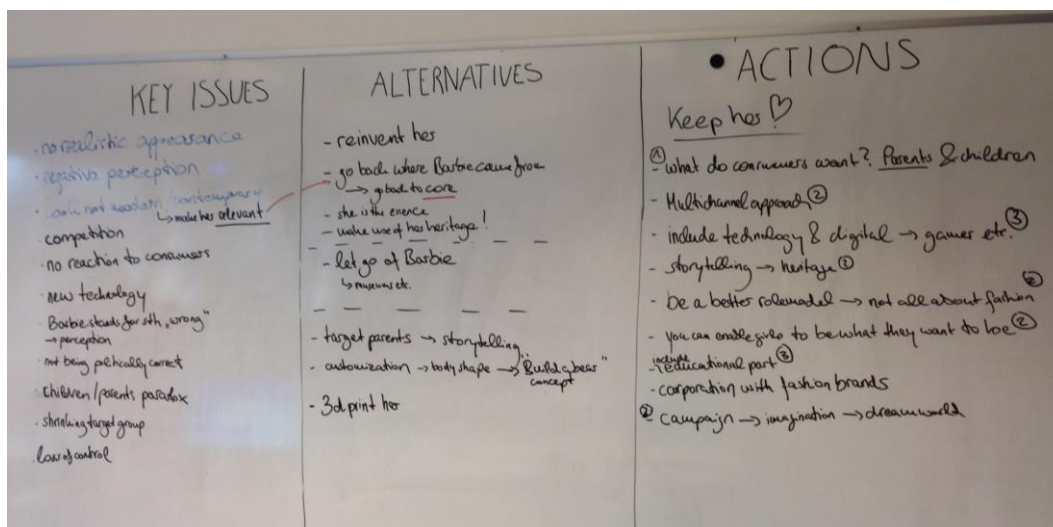 KEY ISSUES
· no realistic appearance
· negative perception
· look not modern/contemporary
↳ make her relevant
· competition
· no reaction to consumers
· new technology
· Barbie stands for sth „wrong"
→ perception
· not being politically correct
· Children/parents paradox
· shrinking target group
loss of control
ALTERNATIVES
- reinvent her
- go back where Barbie came from
→ go back to core
- she is the essence
- make use of her heritage!
- let go of Barbie
↳ museums etc.
- target parents → storytelling..
- customization → body shape → „Build a bear"
concept
- 3d print her
• ACTIONS
Keep her ♡
① - what do consumers want? Parents & children
- Multichannel approach ②
- include technology & digital → games etc. ③
- storytelling → heritage ①
- be a better rolemodel → not all about fashion ②
- you can enable girls to be what they want to be ②
- include educational part ③
- corporation with fashion brands
② campaign → imagination → dreamworld